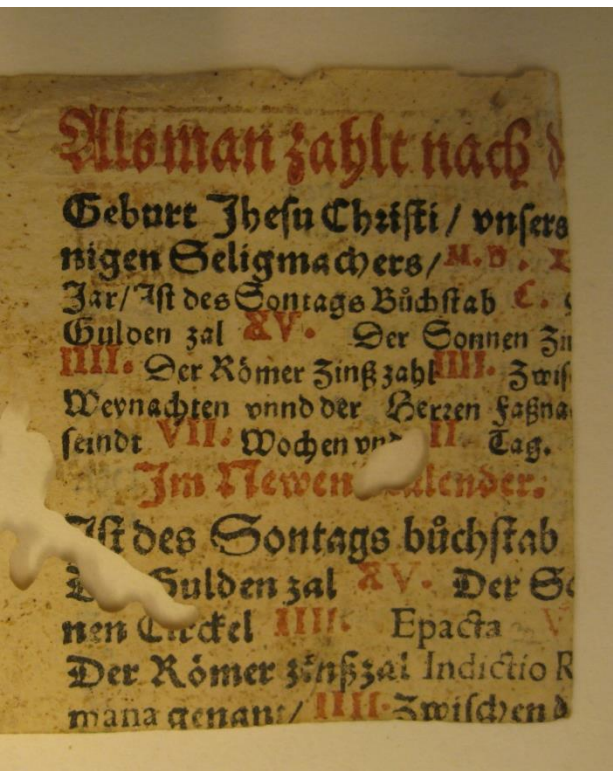 Als man zahlt nach d
Geburt Jhesu Christi / vnsers
nigen Seligmachers / M. D.
Jar / Ist des Sontags Bůchstab C.
Gulden zal XV. Der Sonnen Zi
IIII. Der Römer Zinßzahl IIII. Zwis
Weynachten vnnd der Herren Faßna
seindt VII. Wochen vnd II Tag.
Im Newen Calender.
Ist des Sontags bůchstab
Gulden zal XV. Der So
nen Circkel IIII. Epacta V
Der Römer zinßzal Indictio R
mana genant / IIII. Zwischen d